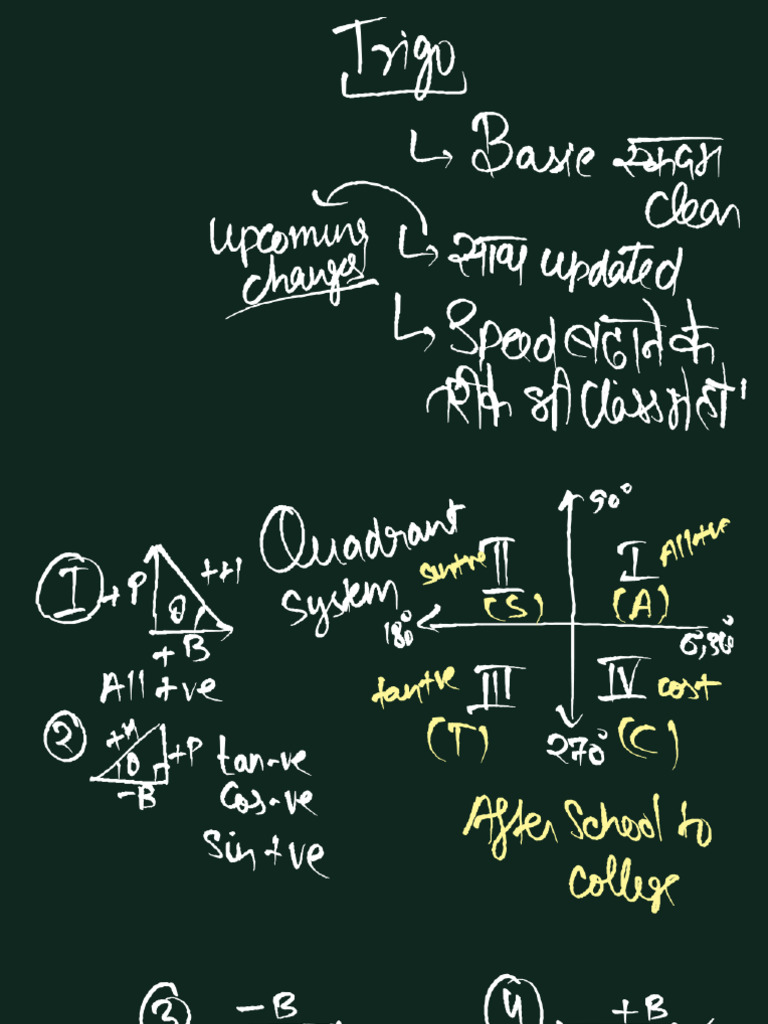 Trigo
Basic सबका
clear
upcoming
changes
साथ updated
Speed बढ़ाने के
तरीके भी Class में हो
Quadrant
system
90°
I All +ve
(A)
II sin +ve
(S)
180°
0,36°
tan +ve III
(T)
IV cos +
(C)
270°
After School to
college
I
+P
+H
θ
+B
All +ve
2
+H
θ
+P
-B
tan -ve
Cos -ve
Sin +ve
3
-B
4
+B